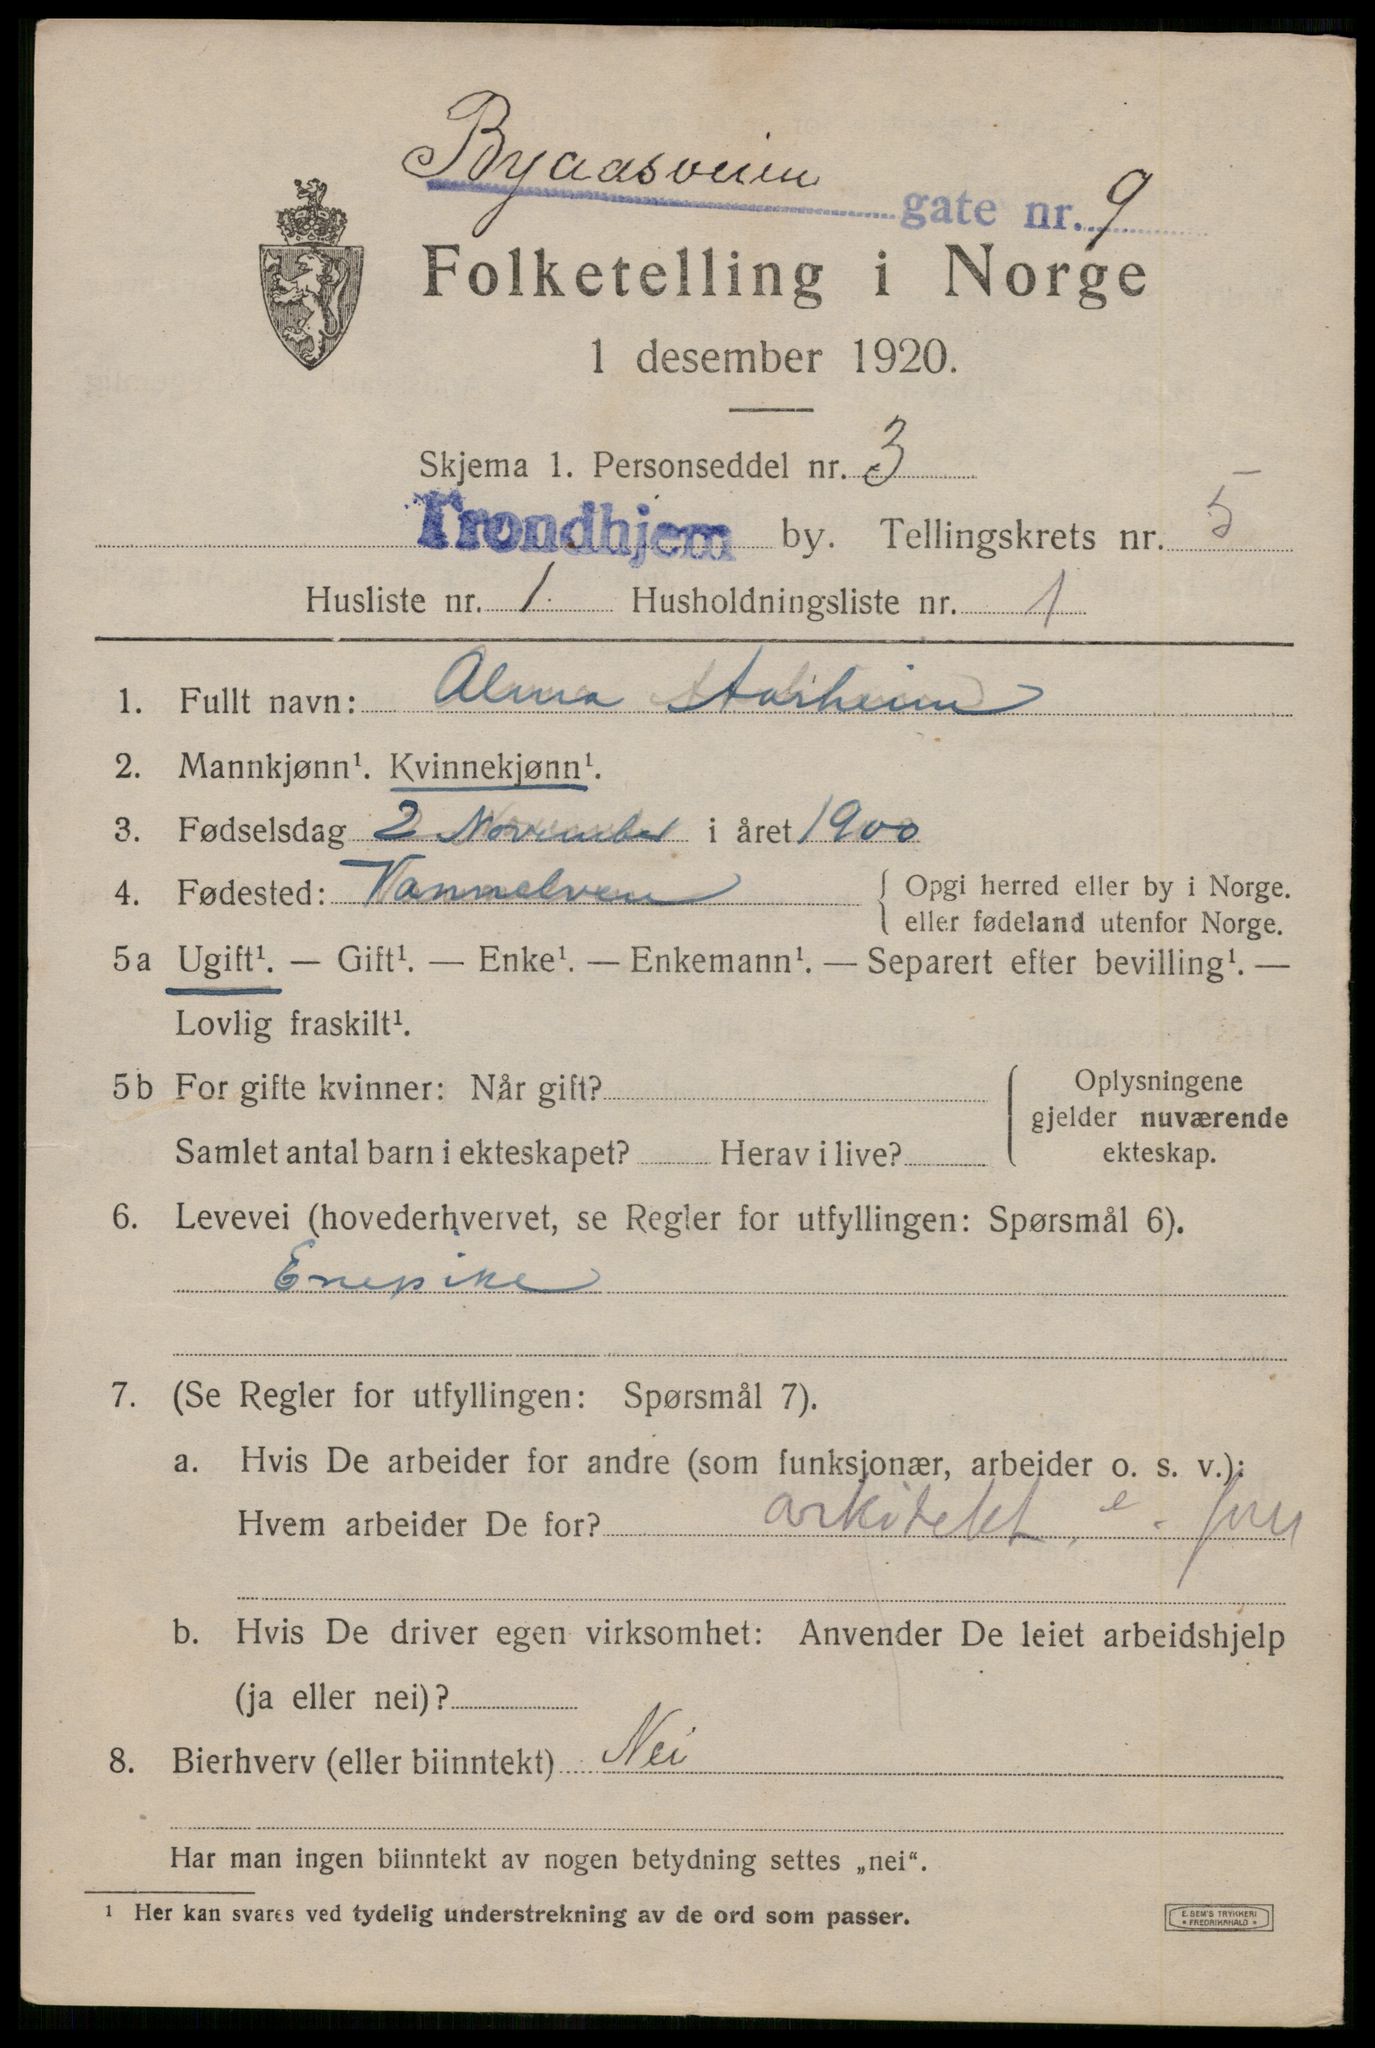 Byaasveien gate nr. 9
Folketelling i Norge
1 desember 1920.
Skjema 1. Personseddel nr. 3
Trondhjem by. Tellingskrets nr. 5
Husliste nr. 1. Husholdningsliste nr. 1
1. Fullt navn: Alma Storheim
2. Mannkjønn¹. Kvinnekjønn¹.
3. Fødselsdag 2 November i året 1900
4. Fødested: Vannelven { Opgi herred eller by i Norge.
eller fødeland utenfor Norge.
5a Ugift¹. — Gift¹. — Enke¹. — Enkemann¹. — Separert efter bevilling¹. —
Lovlig fraskilt¹.
5b For gifte kvinner: Når gift?
Samlet antal barn i ekteskapet? Herav i live?
Oplysningene
gjelder nuværende
ekteskap.
6. Levevei (hovederhvervet, se Regler for utfyllingen: Spørsmål 6).
Enepike
7. (Se Regler for utfyllingen: Spørsmål 7).
a. Hvis De arbeider for andre (som funksjonær, arbeider o. s. v.):
Hvem arbeider De for? arkitekt
b. Hvis De driver egen virksomhet: Anvender De leiet arbeidshjelp
(ja eller nei)?
8. Bierhverv (eller biinntekt) Nei
Har man ingen biinntekt av nogen betydning settes „nei“.
¹ Her kan svares ved tydelig understrekning av de ord som passer.
E. SEM'S TRYKKERI
* FREDRIKSHALD *